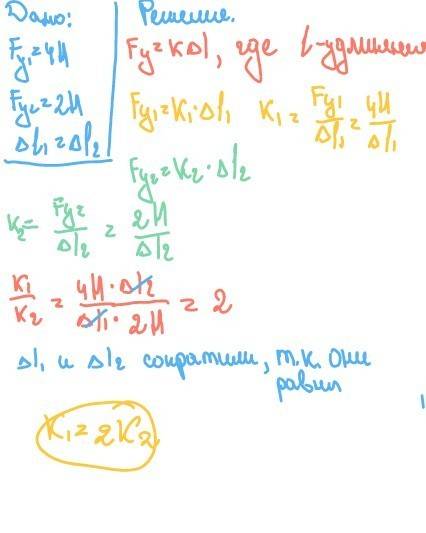 Дано:
Fу₁=4Н
Fу₂=2Н
Δl₁=Δl₂
Решение.
Fу=кΔl, где l-удлинение
Fу₁=к₁·Δl₁ к₁=Fу₁/Δl₁=4Н/Δl₁
Fу₂=к₂·Δl₂
к₂=Fу₂/Δl₂=2Н/Δl₂
к₁/к₂=4Н·Δl₂/Δl₁·2Н=2
Δl₁ и Δl₂ сократили, т.к. они
равны
к₁=2к₂